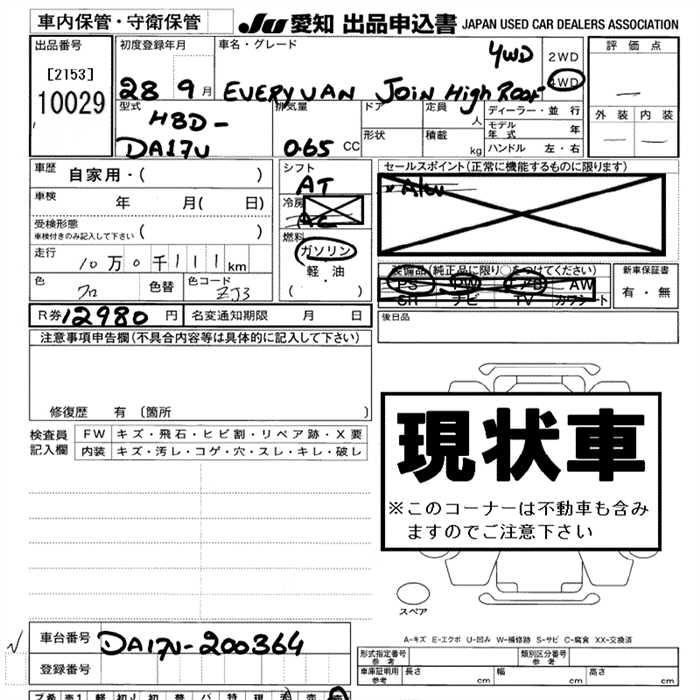 車内保管・守衛保管 JU 愛知 出品申込書 JAPAN USED CAR DEALERS ASSOCIATION
出品番号 初度登録年月 車名・グレード 4WD 2WD 評価点
[2153] 4WD
10029 28 9月 EVERY VAN JOIN High Roof —
型式 排気量 ドア 定員 人 ディーラー・並行 外装 内装
HBD- モデル年式 年 — —
DA17V 065 CC 形状 積載 kg ハンドル 左・右
車歴 自家用・( ) シフト セールスポイント(正常に機能するものに限ります)
AT
車検 年 月( 日) 冷房 AC
受検形態
車検付きのみ記入して下さい ( ) 燃料
ガソリン
走行 10万0千111km 軽・油 装備品(純正品に限り○をつけてください) 新車保証書
PS PW エアB AW 有・無
色 色替 色コード ZJ3 ( ・ ) SR ナビ TV カワシート
R券 12980円 名変通知期限 月 日 後日品
注意事項申告欄(不具合内容等は具体的に記入して下さい)
現状車
※このコーナーは不動車も含み
ますのでご注意下さい
修復歴 有 〔箇所 〕
検査員 FW キズ・飛石・ヒビ割・リペア跡・X要
記入欄 内装 キズ・汚レ・コゲ・穴・スレ・キレ・破レ
スペア
車台番号 DA17V-200364 A-キズ E-エクボ U-凹み W-補修跡 S-サビ C-腐食 XX-交換済
登録番号 形式指定番号 参考 類別区分番号 参考
車庫証明用 参考 長さ cm 幅 cm 高さ cm